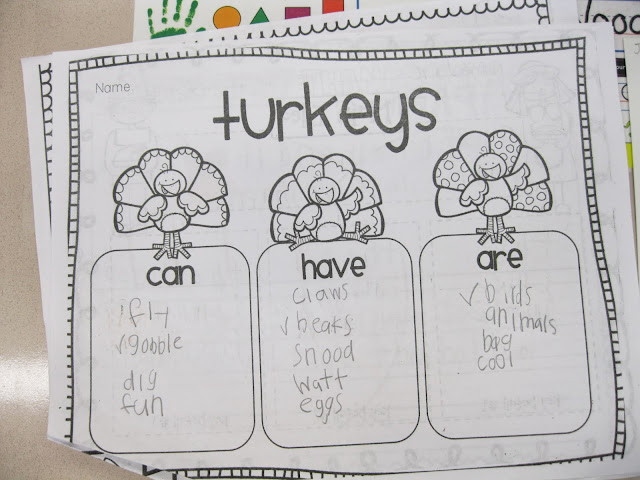 Name
turkeys
can
fly
✓gobble
dig
fun
have
claws
✓beaks
snood
watt
eggs
are
✓birds
animals
cool